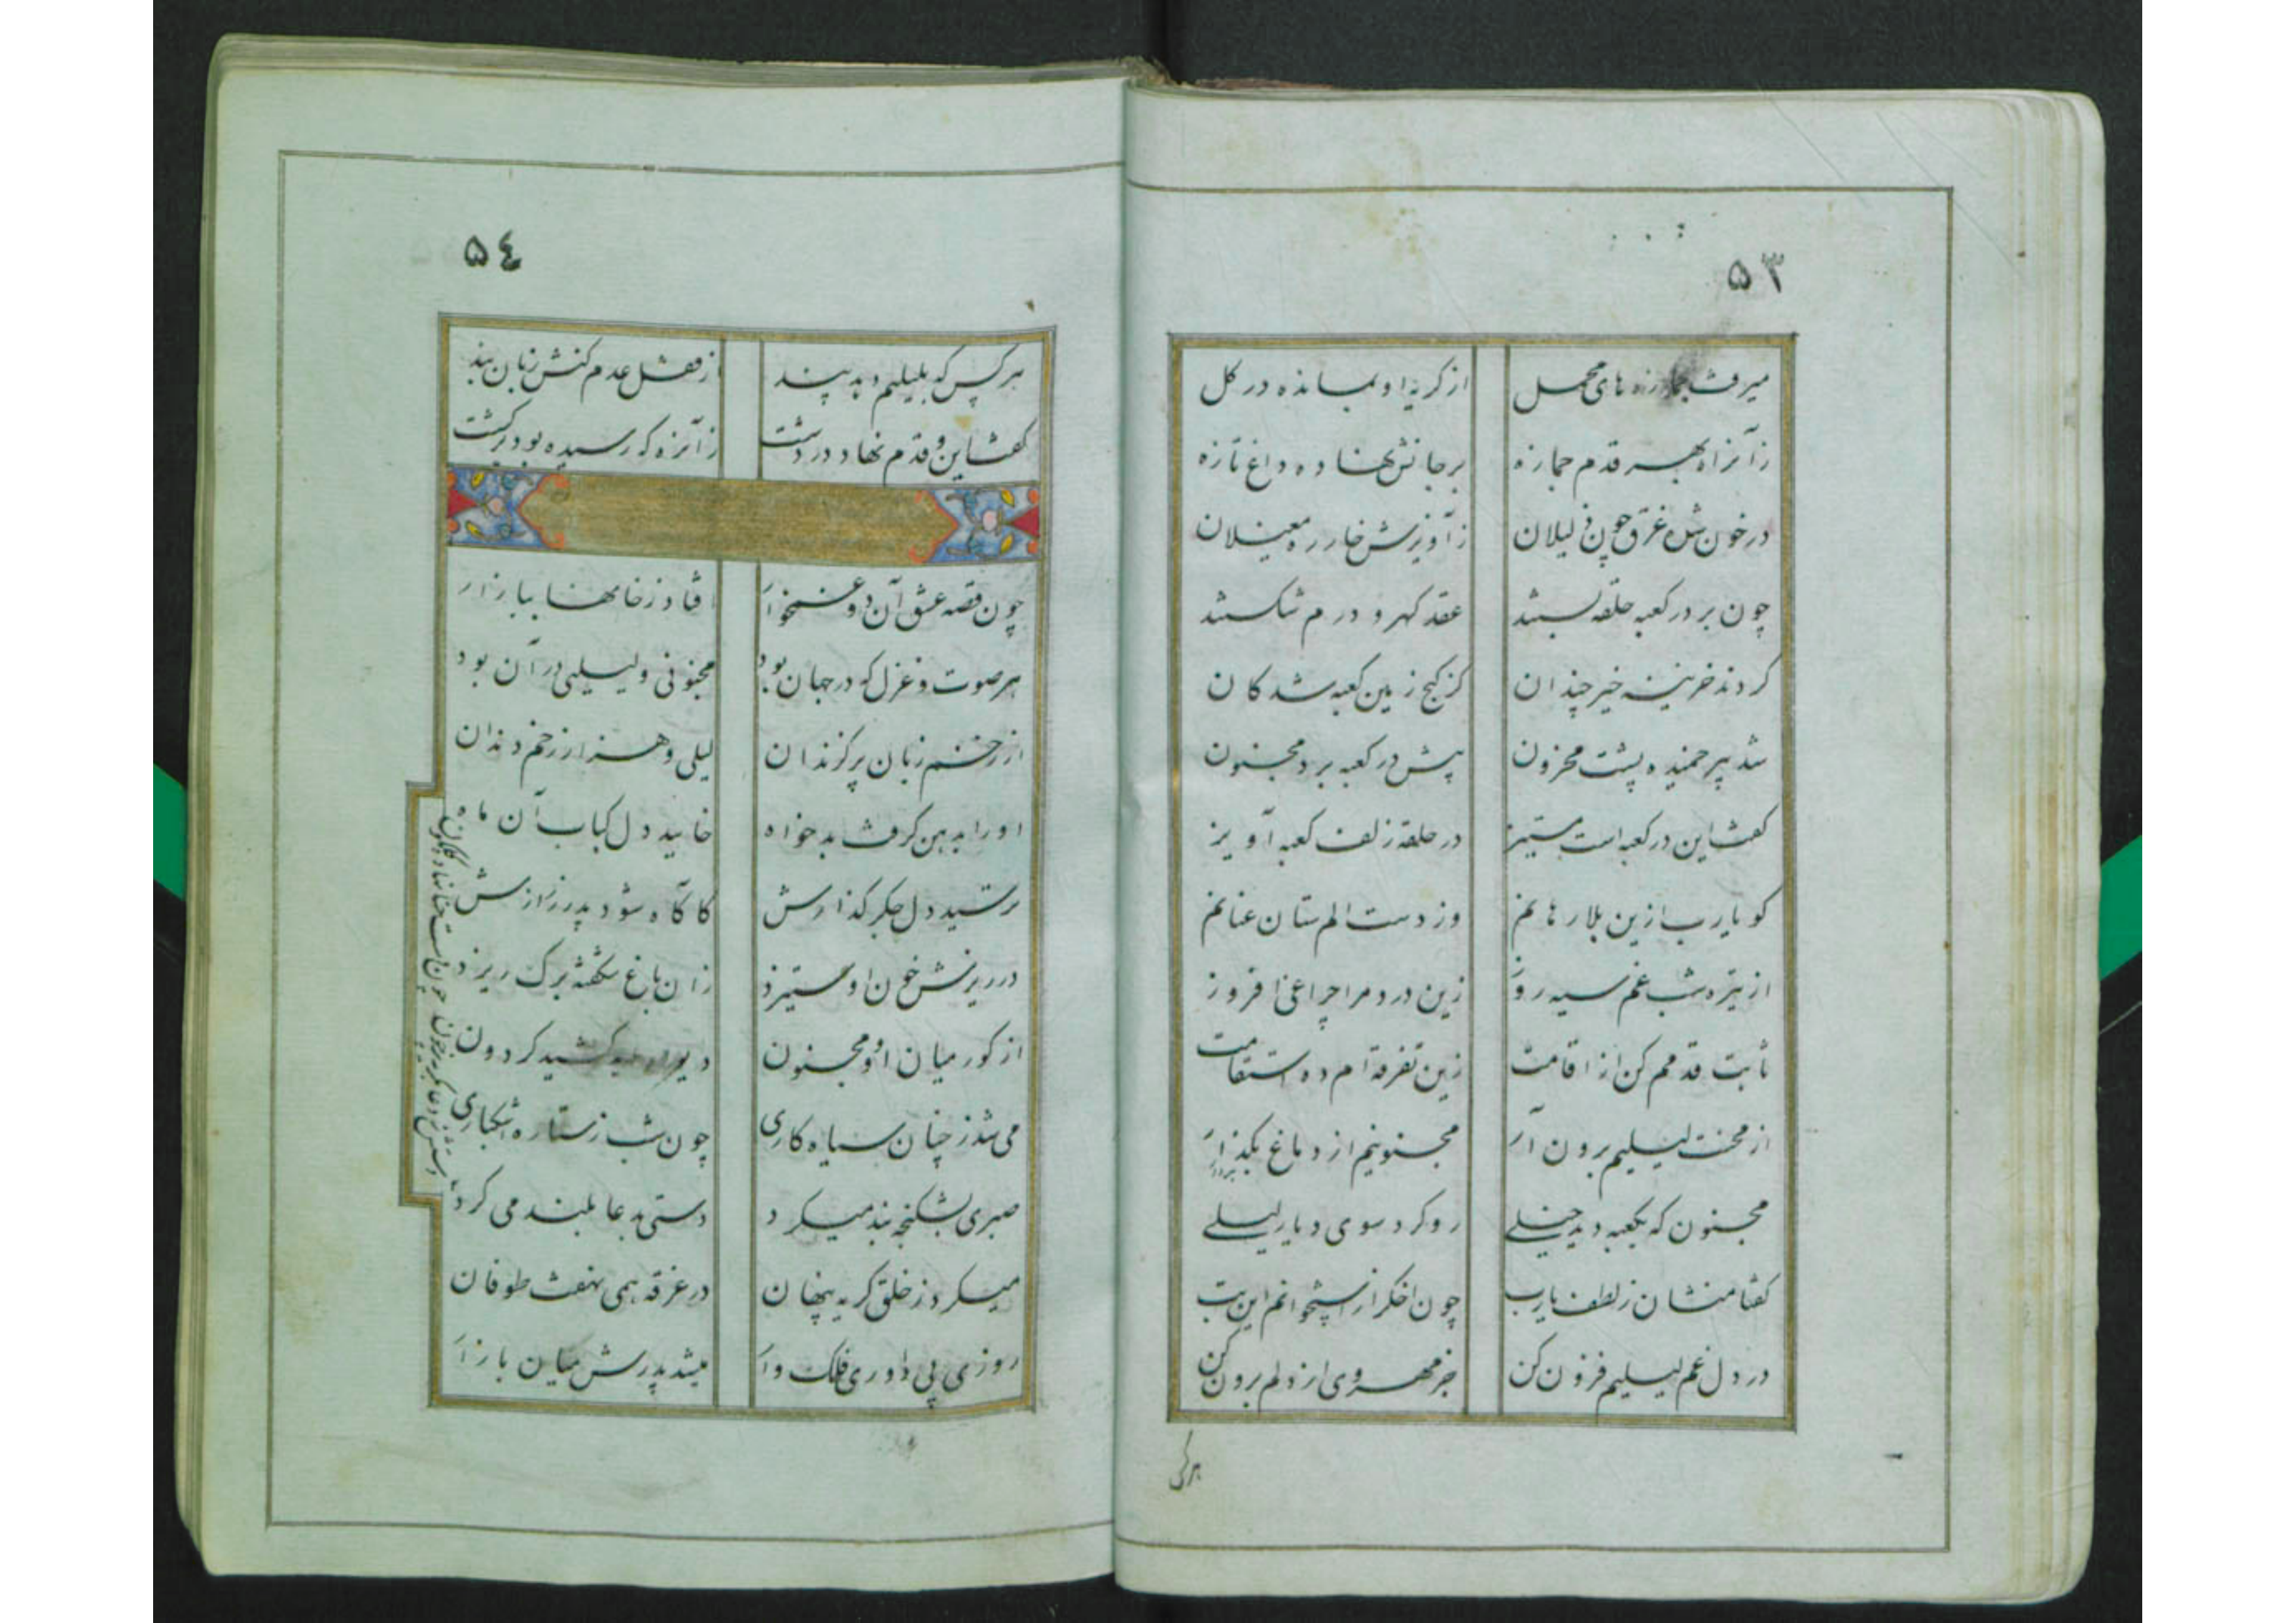 ۵۳
میرفت جمازه های محمل از گریه او بمانده در گل
زآنراه بهر قدم جمازه برجانش نهاده داغ تازه
در خون شده غرق چون ذلیلان زآویزش خار ره مغیلان
چون بر در کعبه حلقه بستند عقد گهر و درم شکستند
کردند خزینه خیر چندان کز گنج زمین کعبه شد کان
شد پیر خمیده پشت محزون پیش در کعبه برد مجنون
گفت این در کعبه است مستیز در حلقه زلف کعبه آویز
گو یارب ازین بلا رهانم وز دست الم ستان عنانم
از تیره شب غم سیه روز زین درد مرا چراغی افروز
ثابت قدمم کن از اقامت زین تفرقه ام ده استقامت
از محنت لیلیم برون آر مجنونیم از دماغ بگذار
مجنون که بکعبه دید خیلی رو کرد سوی دیار لیلی
گفتا منشان ز لطف یارب چون اخگر از استخوانم این تب
در دل غم لیلیم فزون کن جز مهر وی از دلم برون کن
هرکس
۵۴
هرکس که بلیلیم دهد پند از قفل عدم کنش زبان بند
گفت این و قدم نهاد در دشت زآنره که رسیده بود برگشت
چون قصه عشق آن دو غمخوار افتاد ز خامها ببازار
هر صوت و غزل که در جهان بود مجنونی و لیلیی در آن بود
از زخم زبان پر گزندان لیلی و هزار زخم دندان
او را بدهن گرفت بدخواه خایید دل کباب آن ماه
ترسید دل جگر گذارش کاگاه شود پدر ز رازش
در ریزش خون او ستیزد زان باغ شکفته برگ ریزد
از گور میان او و مجنون کشید گردون
می شد ز چنان سیاه کاری چون شب ز ستاره اشکباری
صبری بشکنجه بند میکرد دستی بدعا بلند می کرد
میکرد ز خلق گریه پنهان در غرقه همی نهفت طوفان
روزی پی داوری فلک وار میشد پدرش میان بازار